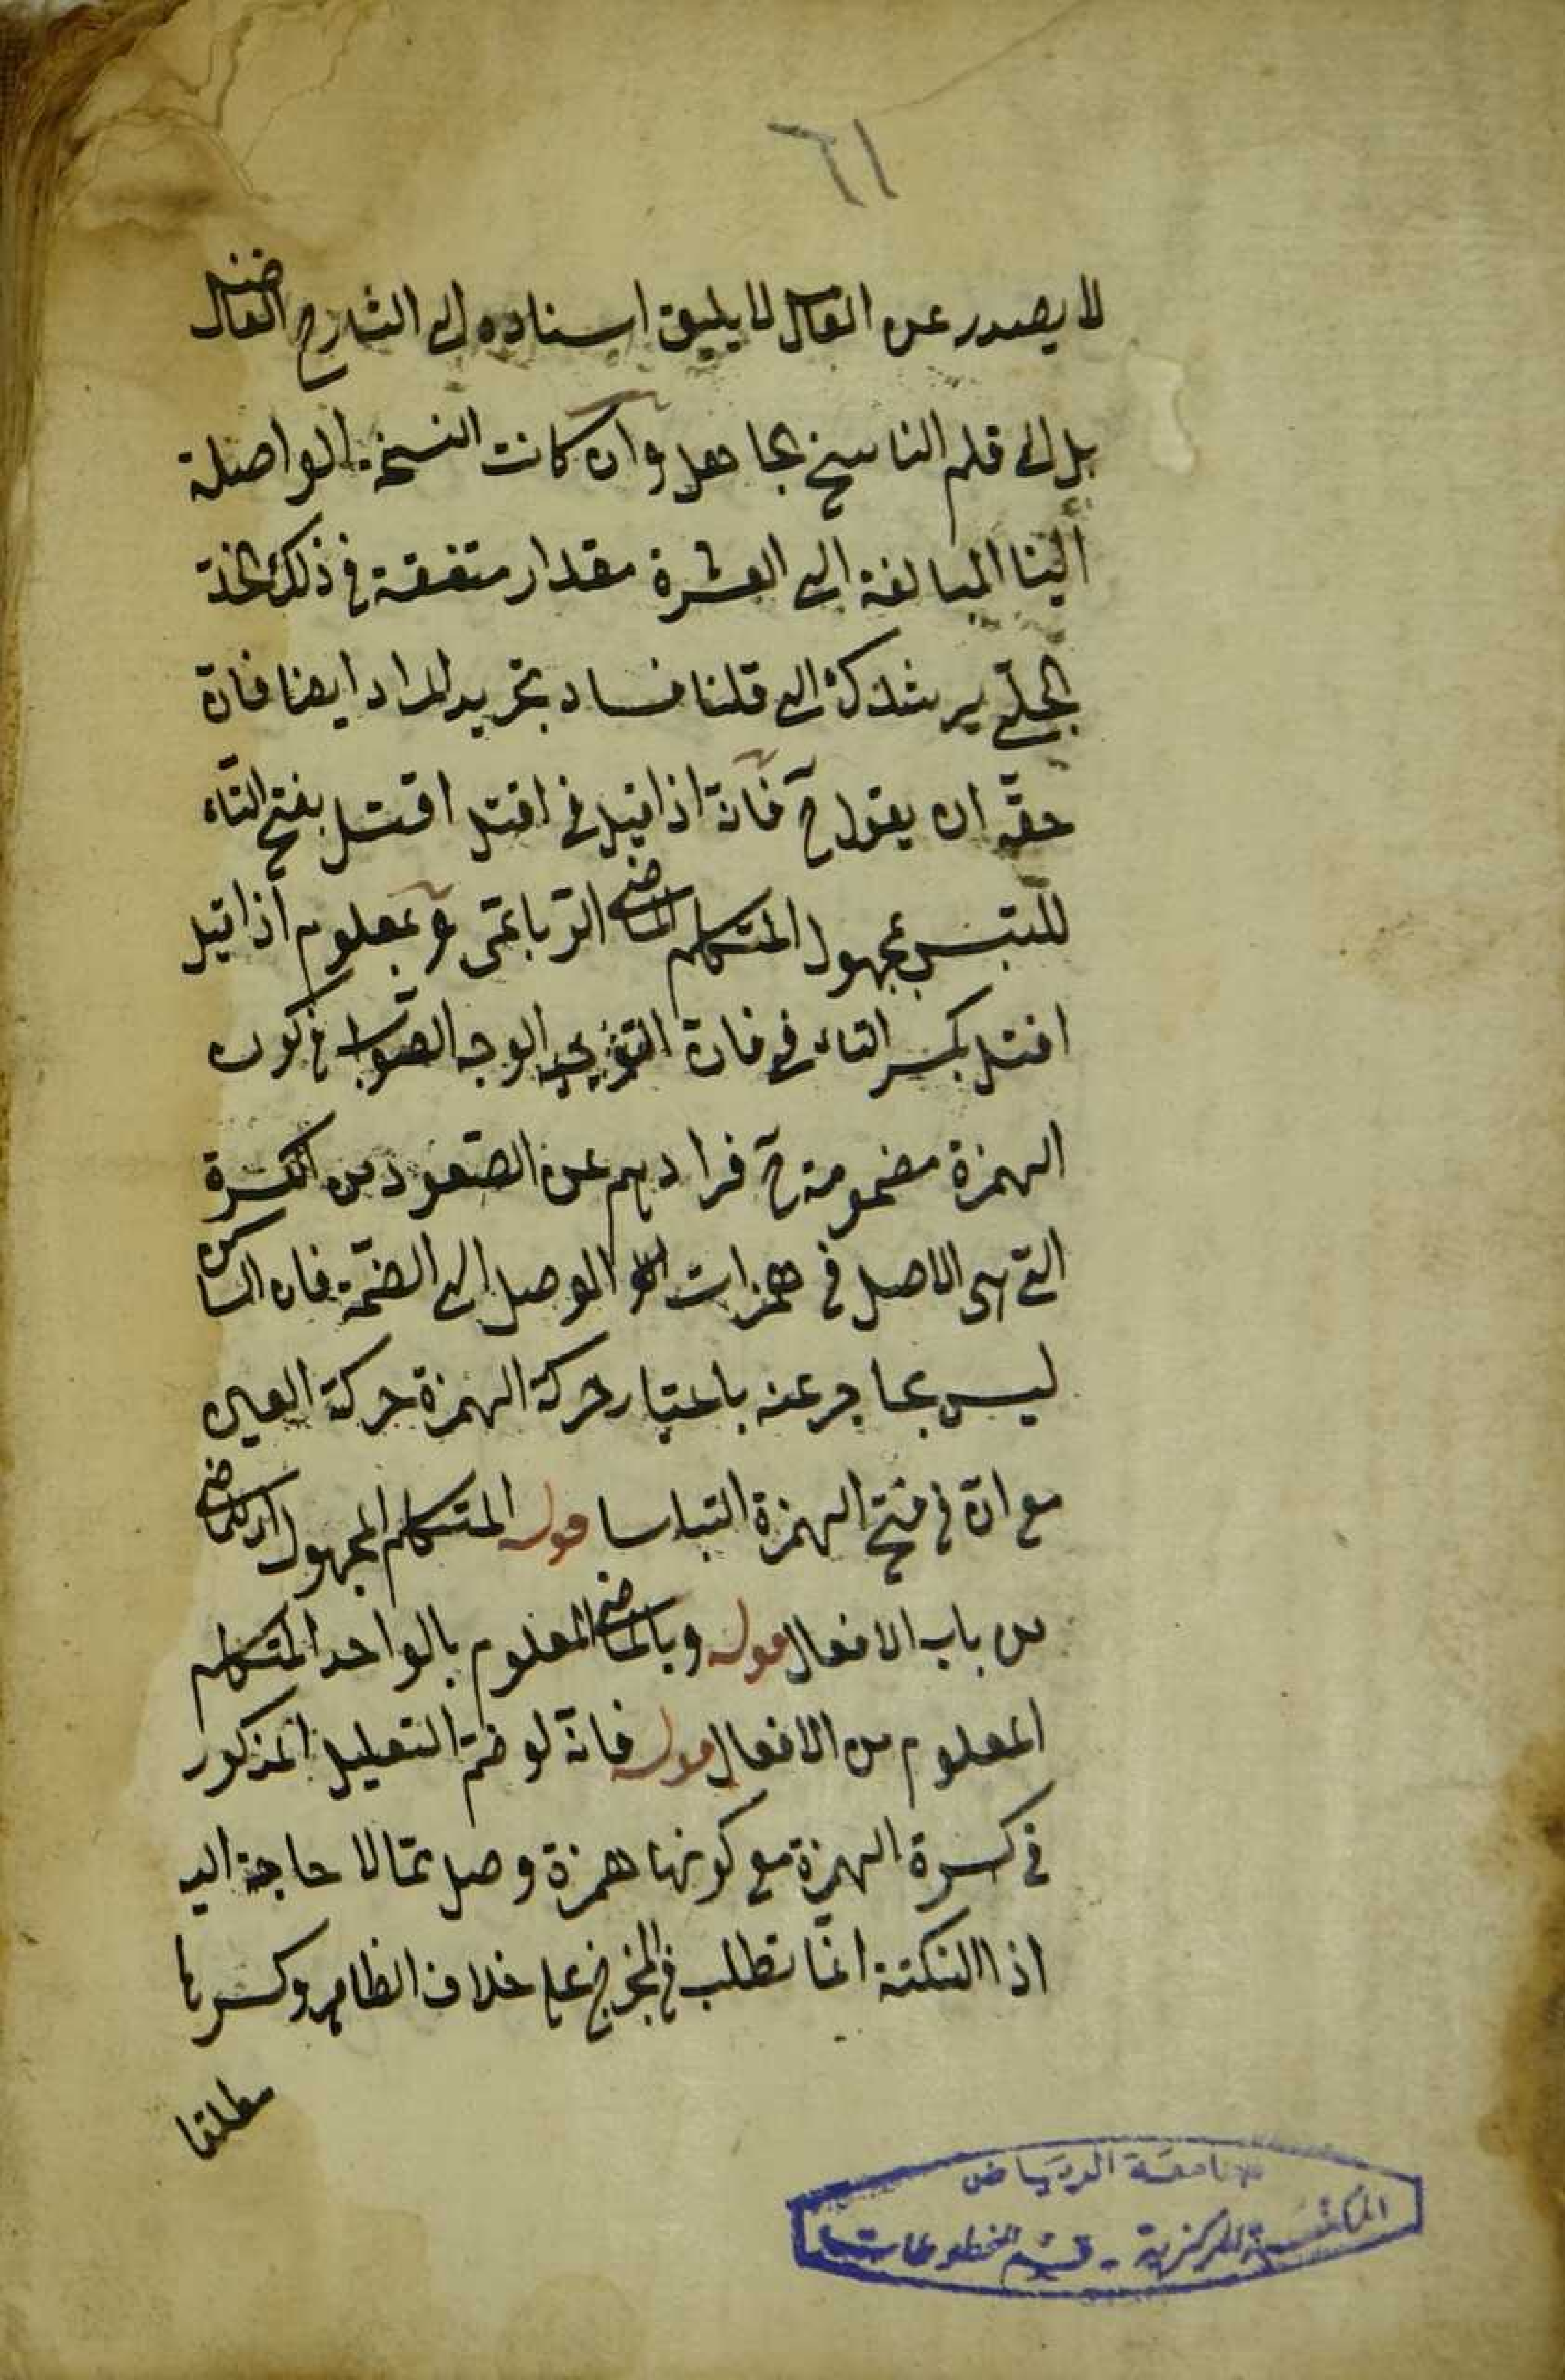 ٦١
لا يصدر عن العاقل لا يليق اسناده الى الشارح الفاضل
بل الى قلم الناسخ الجاهل وان كانت النسخة الواصلة
الينا المبالغة الى العشرة مقدار متفقة في ذلك
يرشدك الى قلنا فساد تحرير المراد ايضا فانه
حقه ان يقول ح فانه اذا قيل في اقتل اقتل بفتح التاء
للتبس بمجهول المتكلم الماضي الرباعى وبمعلوم اذا قيل
اقتل بكسر التاء في فانه الوجه الصواب في كون
الهمزة مضمومة ح فرارهم عن الصعود من الكسرة
التي هى الاصل في همزات الوصل الى الضمة فان الساكن
ليس بحاجر عنه باعتبار حركة الهمزة حركة العين
مع انه في فتح الهمزة التباسا قوله المتكلم المجهول
من باب الافعال قوله وبالماضي المعلوم بالواحد المتكلم
المعلوم من الافعال قوله فانه لو ضم التعليل المذكور
في كسرة الهمزة مع كونها همزة وصل مما لا حاجة اليه
اذ النكتة انما تطلب في المخرج على خلاف الظاهر وكسرها
مطلقا
جامعة الرياض
المكتبة المركزية - قسم المخطوطات